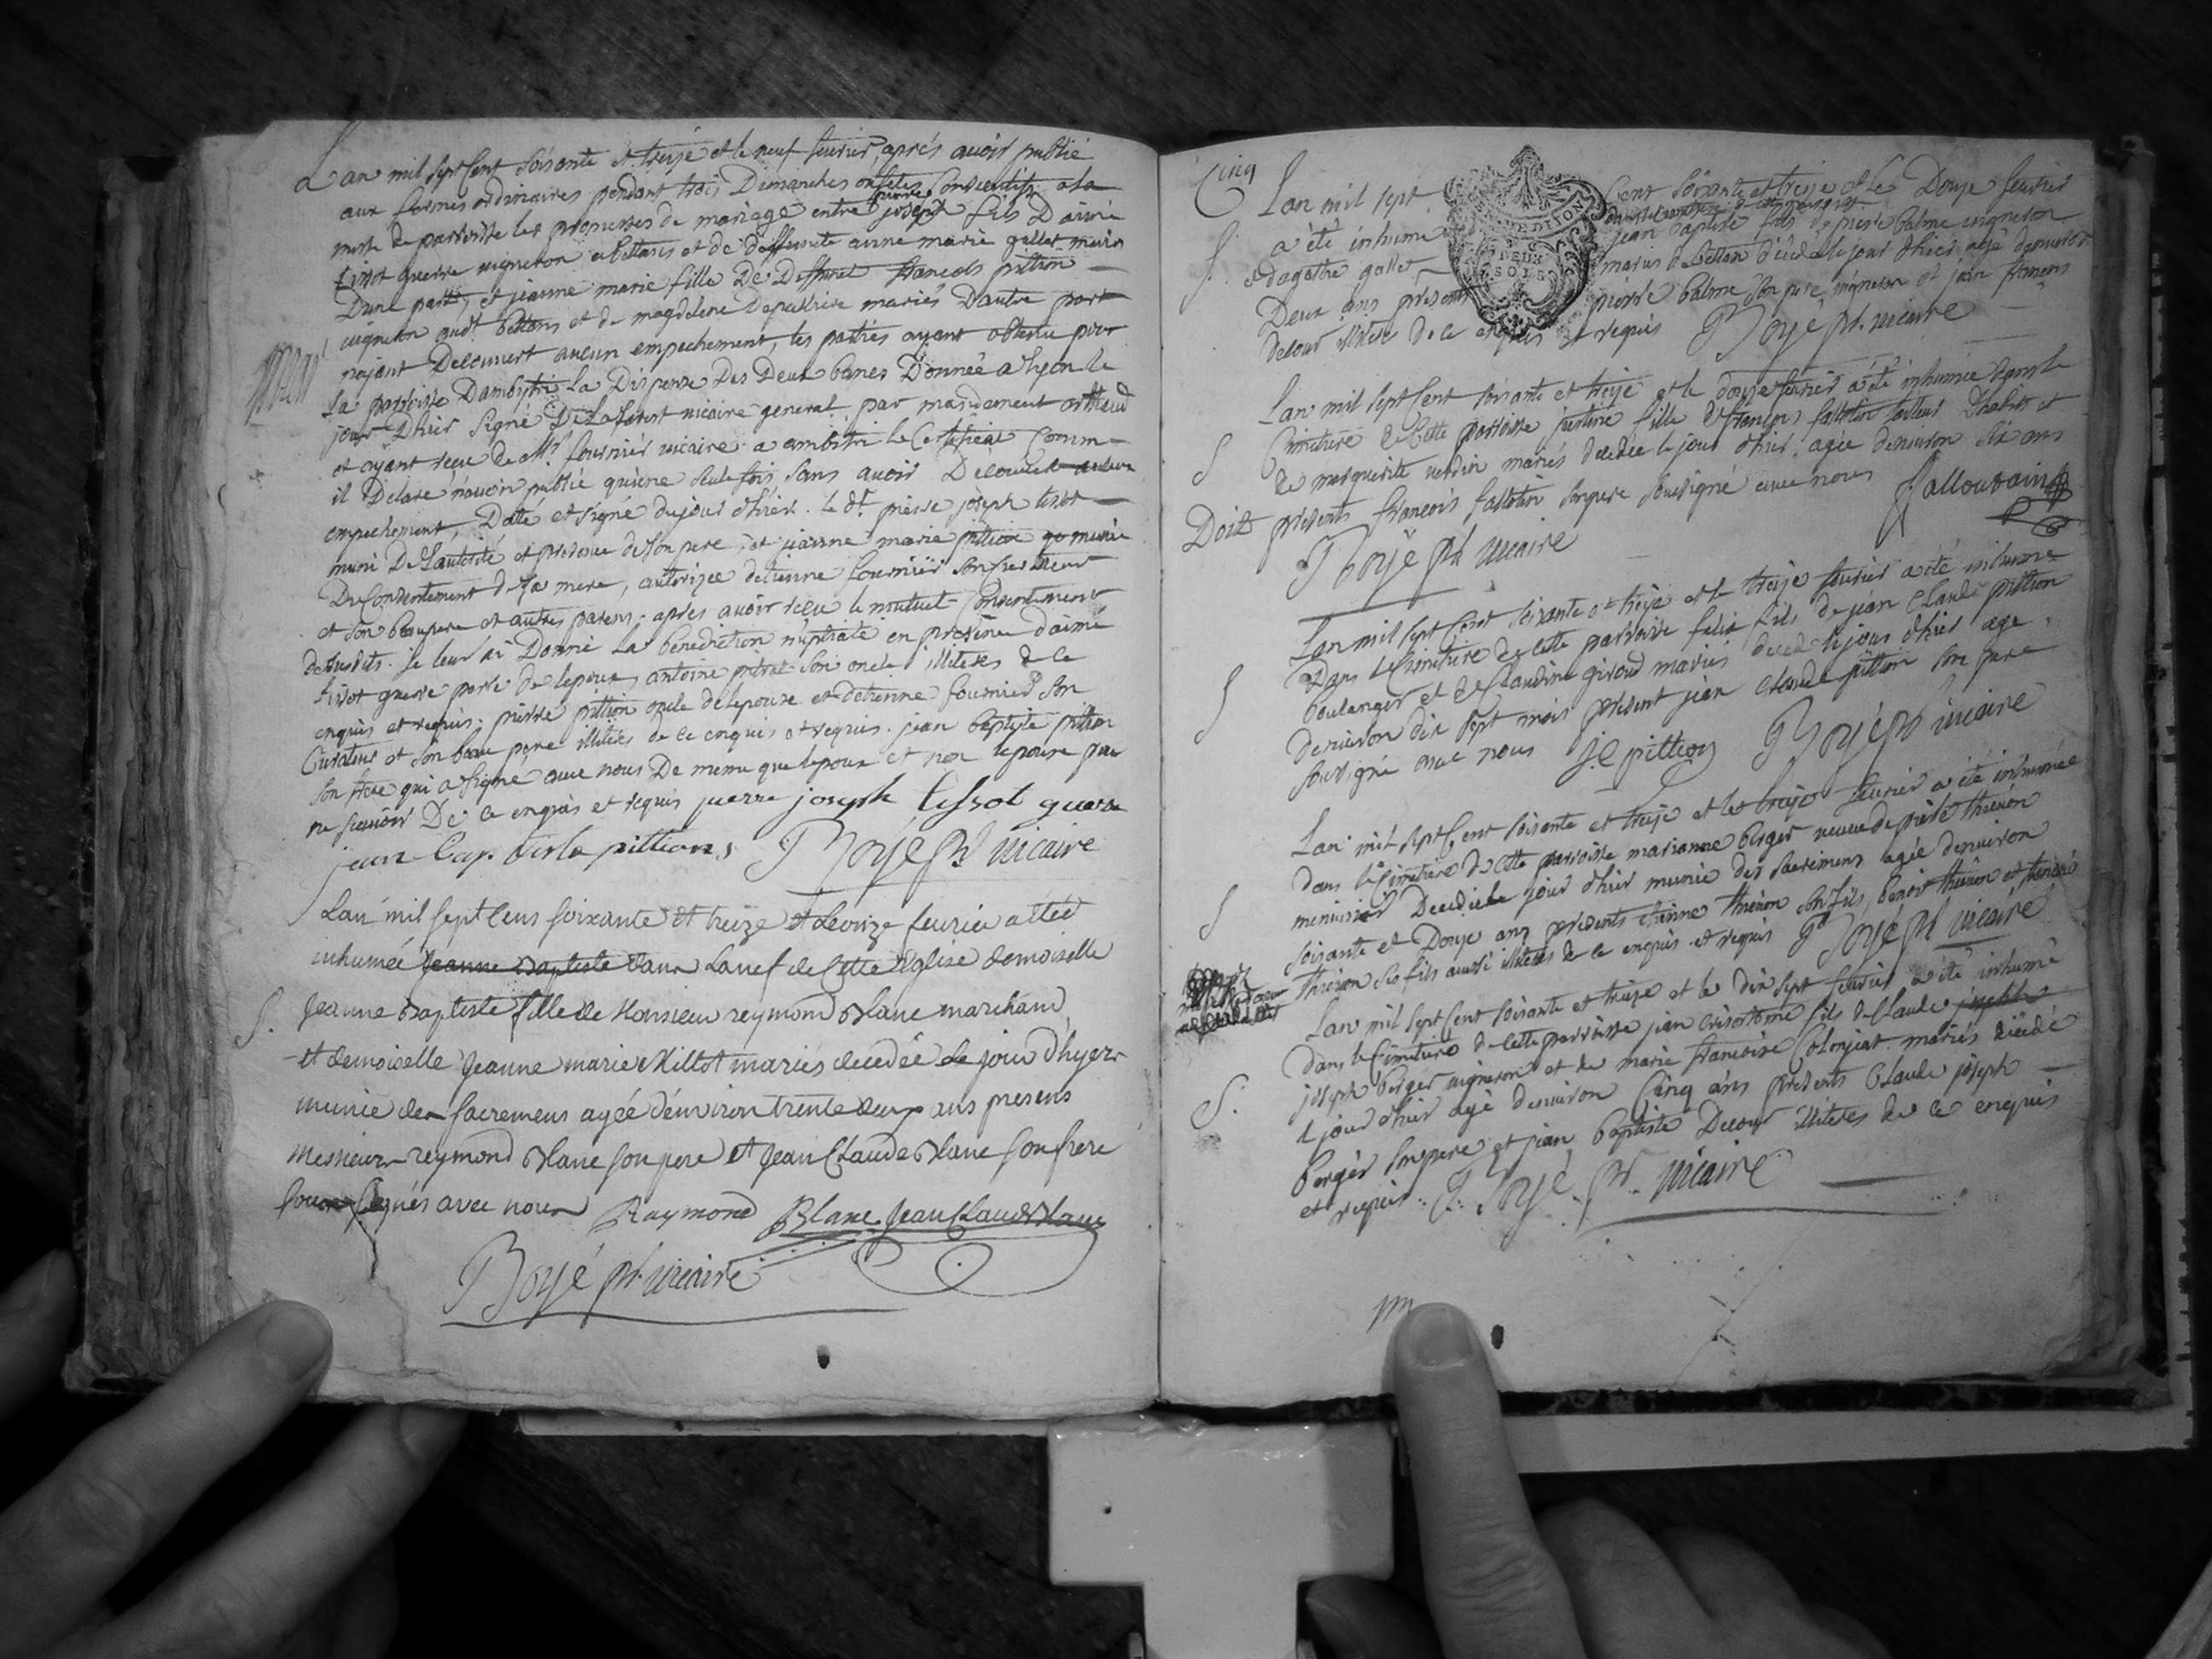 Lan mil sept Cent soixante et treize et le neuf fevrier, aprés avoir publié
aux formes ordinaires pendant trois Dimanches ou fetes Consecutifs a la
messe de parroisse les promesses de mariage entre pierre joseph fils D'aimé
tissot guerre vigneron a bettans et de deffunte anne marie gallet mariés
D'une part, et jeanne marie fille De Deffunt francois pittion
vigneron audt bettans et de magdelene mariés D'autre part
nayant Decouvert aucun empechement, les parties ayant obtenu pour
la parroisse D'ambutrix La Dispense Des Deux banes Donnée a lyon le
jour D'hier signé vicaire general, par mandement
et ayant reçu de Mr fournier vicaire a ambutrix le Certificat Comme
il Declare n'avoir publié qu'une seule fois sans avoir Decouvert
empechement, Datte et signé du jour d'hier. le dt pierre joseph tissot
muni De L'autorité et presence de son pere, et jeanne marie pittion munie
Du Consentement de sa mere, autorizée detienne fournier son Curateur
et son beaupere et autres parens; apres avoir reçu le mutuel Consentement
desusdits. je leur ai Donné La benediction nuptiale en presence d'aimé
tissot guerre pere de lepoux, antoine son oncle illiteres de ce
enquis et requis; pierre pittion oncle de lepouse et detienne fournier son
Curateur et son beau pere illiteres de ce enquis et requis. jean baptiste pittion
son frere qui a signé avec nous De meme que lepoux et non lepouse pour
ne sçavoir De ce enquis et requis pierre joseph tissot guerre
jean bap tiste pittion Boyé ptre vicaire
Lan mil sept Cens soixante et treize et le onze fevrier a etée
inhumée Jeanne Baptiste dans La nef de Cette Eglise demoiselle
S. Jeanne Baptiste fille de Monsieur reymond Blanc marchand
et demoiselle Jeanne marie Millot mariés decedée le jour d'hyer
munie des sacremens agée d'environ trente deux ans presens
Messieurs reymond Blanc son pere et Jean Claude Blanc son frere
soussignés avec nous Raymond Blanc Jean Claude Blanc
Boyé ptr. vicaire
Cinq
Lan mil sept Cent soixante et treize et le Douze fevrier
a été inhumé jean baptiste fils de pierre balme vigneron
S. et d'agathe gallet mariés de bettan décedé le jour d'hier agé denviron
Deux ans presents pierre balme son pere vigneron et jean
delour illitere de ce enquis et requis Boyé ptr. vicaire
Lan mil sept Cent soixante et treize et le douze fevrier a été inhumée dans le
S Cimetiere de Cette parroisse justine fille de francois tailleur D'habits et
de marguerite verdin mariés decedée le jour d'hier, agée denviron six ans
presents francois son pere soussigné avec nous
Boyé ptr vicaire
Lan mil sept Cent soixante et treize et le treize fevrier a été inhumé
S Dans le Cimetiere de Cette parroisse felix fils de jean Claude pittion
boulanger et de Claudine giroud mariés decedé le jour d'hier agé
denviron dix sept mois present jean Claude pittion son pere
soussigné avec nous j c pittion Boyé ptr vicaire
Lan mil sept Cent soixante et treize et le treize fevrier a été inhumée
S dans le Cimetiere de Cette parroisse marianne berger veuve de pierre thienon
menuisier Decedée le jour d'hier munie des sacremens agée denviron
soixante et Douze ans presents etienne thienon son fils, benoit thienon et
thienon ses fils aussi illiteres de ce enquis et requis Boyé ptr vicaire
Lan mil sept Cent soixante et treize et le dix sept fevrier a été inhumé
dans le Cimetiere de Cette parroisse jean crisostome fils de Claude
S. joseph berger vigneron et de marie francoise mariés décedé
le jour d'hier agé denviron Cinq ans presents Claude joseph
berger son pere et jean baptiste Delour illiteres de ce enquis
et requis. Boyé ptr. vicaire
DEUX
SOLS